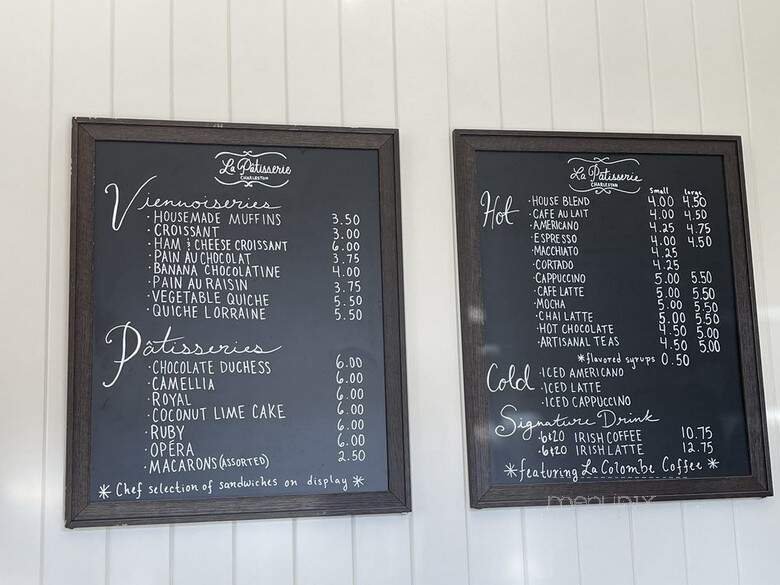 La Pâtisserie
CHARLESTON
Viennoiseries
· HOUSEMADE MUFFINS 3.50
· CROISSANT 3.00
· HAM & CHEESE CROISSANT 6.00
· PAIN AU CHOCOLAT 3.75
· BANANA CHOCOLATINE 4.00
· PAIN AU RAISIN 3.75
· VEGETABLE QUICHE 5.50
· QUICHE LORRAINE 5.50
Pâtisseries
· CHOCOLATE DUCHESS 6.00
· CAMELLIA 6.00
· ROYAL 6.00
· COCONUT LIME CAKE 6.00
· RUBY 6.00
· OPÉRA 6.00
· MACARONS (ASSORTED) 2.50
* Chef selection of sandwiches on display *
La Pâtisserie
CHARLESTON
Small large
Hot · HOUSE BLEND 4.00 4.50
· CAFE AU LAIT 4.00 4.50
· AMERICANO 4.25 4.75
· ESPRESSO 4.00 4.50
· MACCHIATO 4.25
· CORTADO 4.25
· CAPPUCCINO 5.00 5.50
· CAFE LATTE 5.00 5.50
· MOCHA 5.00 5.50
· CHAI LATTE 5.00 5.50
· HOT CHOCOLATE 4.50 5.00
· ARTISANAL TEAS 4.50 5.00
* flavored syrups 0.50
Cold · ICED AMERICANO
· ICED LATTE
· ICED CAPPUCCINO
Signature Drink
· 6&20 IRISH COFFEE 10.75
· 6&20 IRISH LATTE 12.75
* featuring La Colombe Coffee *
menupix